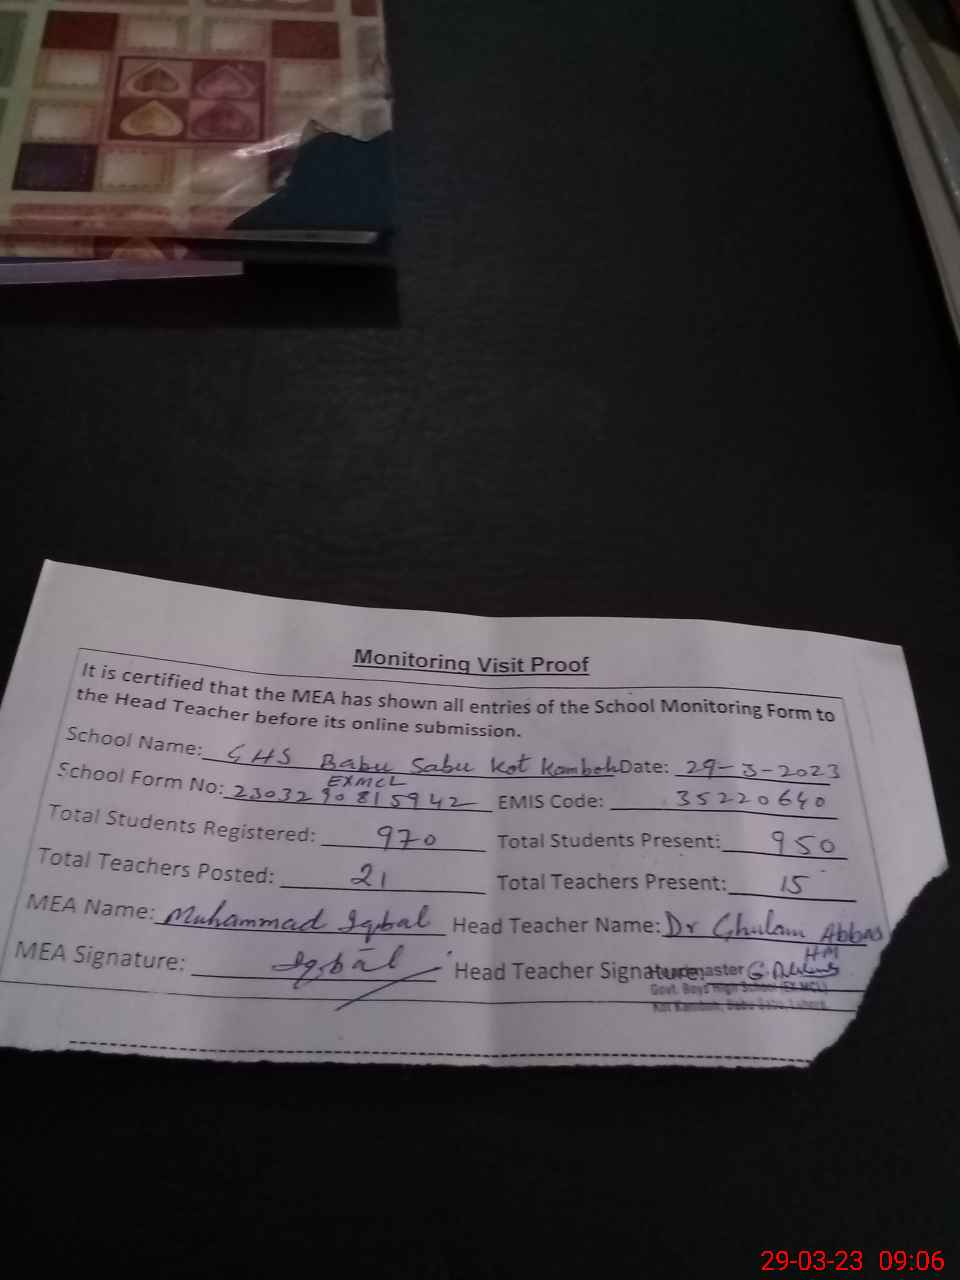 Monitoring Visit Proof
It is certified that the MEA has shown all entries of the School Monitoring Form to
the Head Teacher before its online submission.
School Name: GHS Babu Sabu Kot Kamboh Date: 29-3-2023
EXMCL
School Form No: 2303290815942 EMIS Code: 35220640
Total Students Registered: 970 Total Students Present: 950
Total Teachers Posted: 21 Total Teachers Present: 15
MEA Name: Muhammad Iqbal Head Teacher Name: Dr Ghulam Abbas
HM
MEA Signature: Iqbal Head Teacher Signature:
Headmaster
Govt. Boys High School (EX.MCL)
Kot Kamboh, Babu Sabu, Lahore
29-03-23 09:06